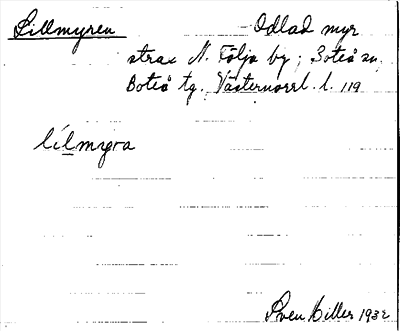 Lillmyren Odlad myr
strax N. Följa by; Boteå sn,
Boteå tg. Västernorrl. l. 119
lílmyra
Sven Hiller 1932